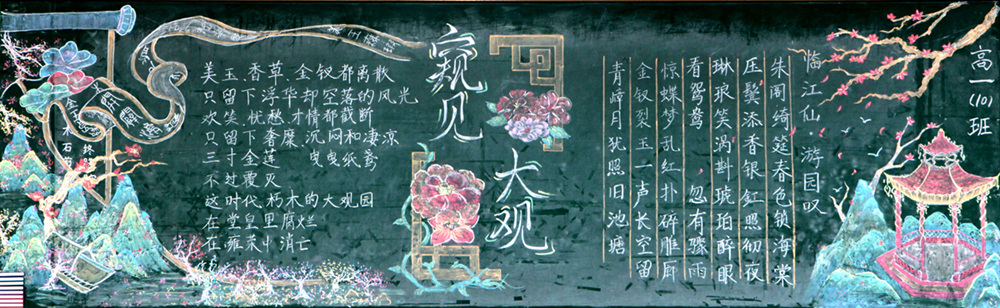 美玉、香草、金钗都离散
只留下浮华却空落的风光
欢笑、忧愁、才情都截断
只留下奢靡、沉闷和凄凉
三寸金莲 曳曳纸鸢
不过覆灭
这时代朽木的大观园
在堂皇里腐烂
在雍荣中消亡
窥见
大观
高一(10)班
临江仙·游园叹
朱阁绮筵春色锁海棠
压鬓添香银釭照彻夜
琳琅笑涡斟琥珀醉眼
看鸳鸯 忽有骤雨
惊蝶梦乱红扑碎雕廊
金钗裂玉一声长空留
青嶂月犹照旧池塘